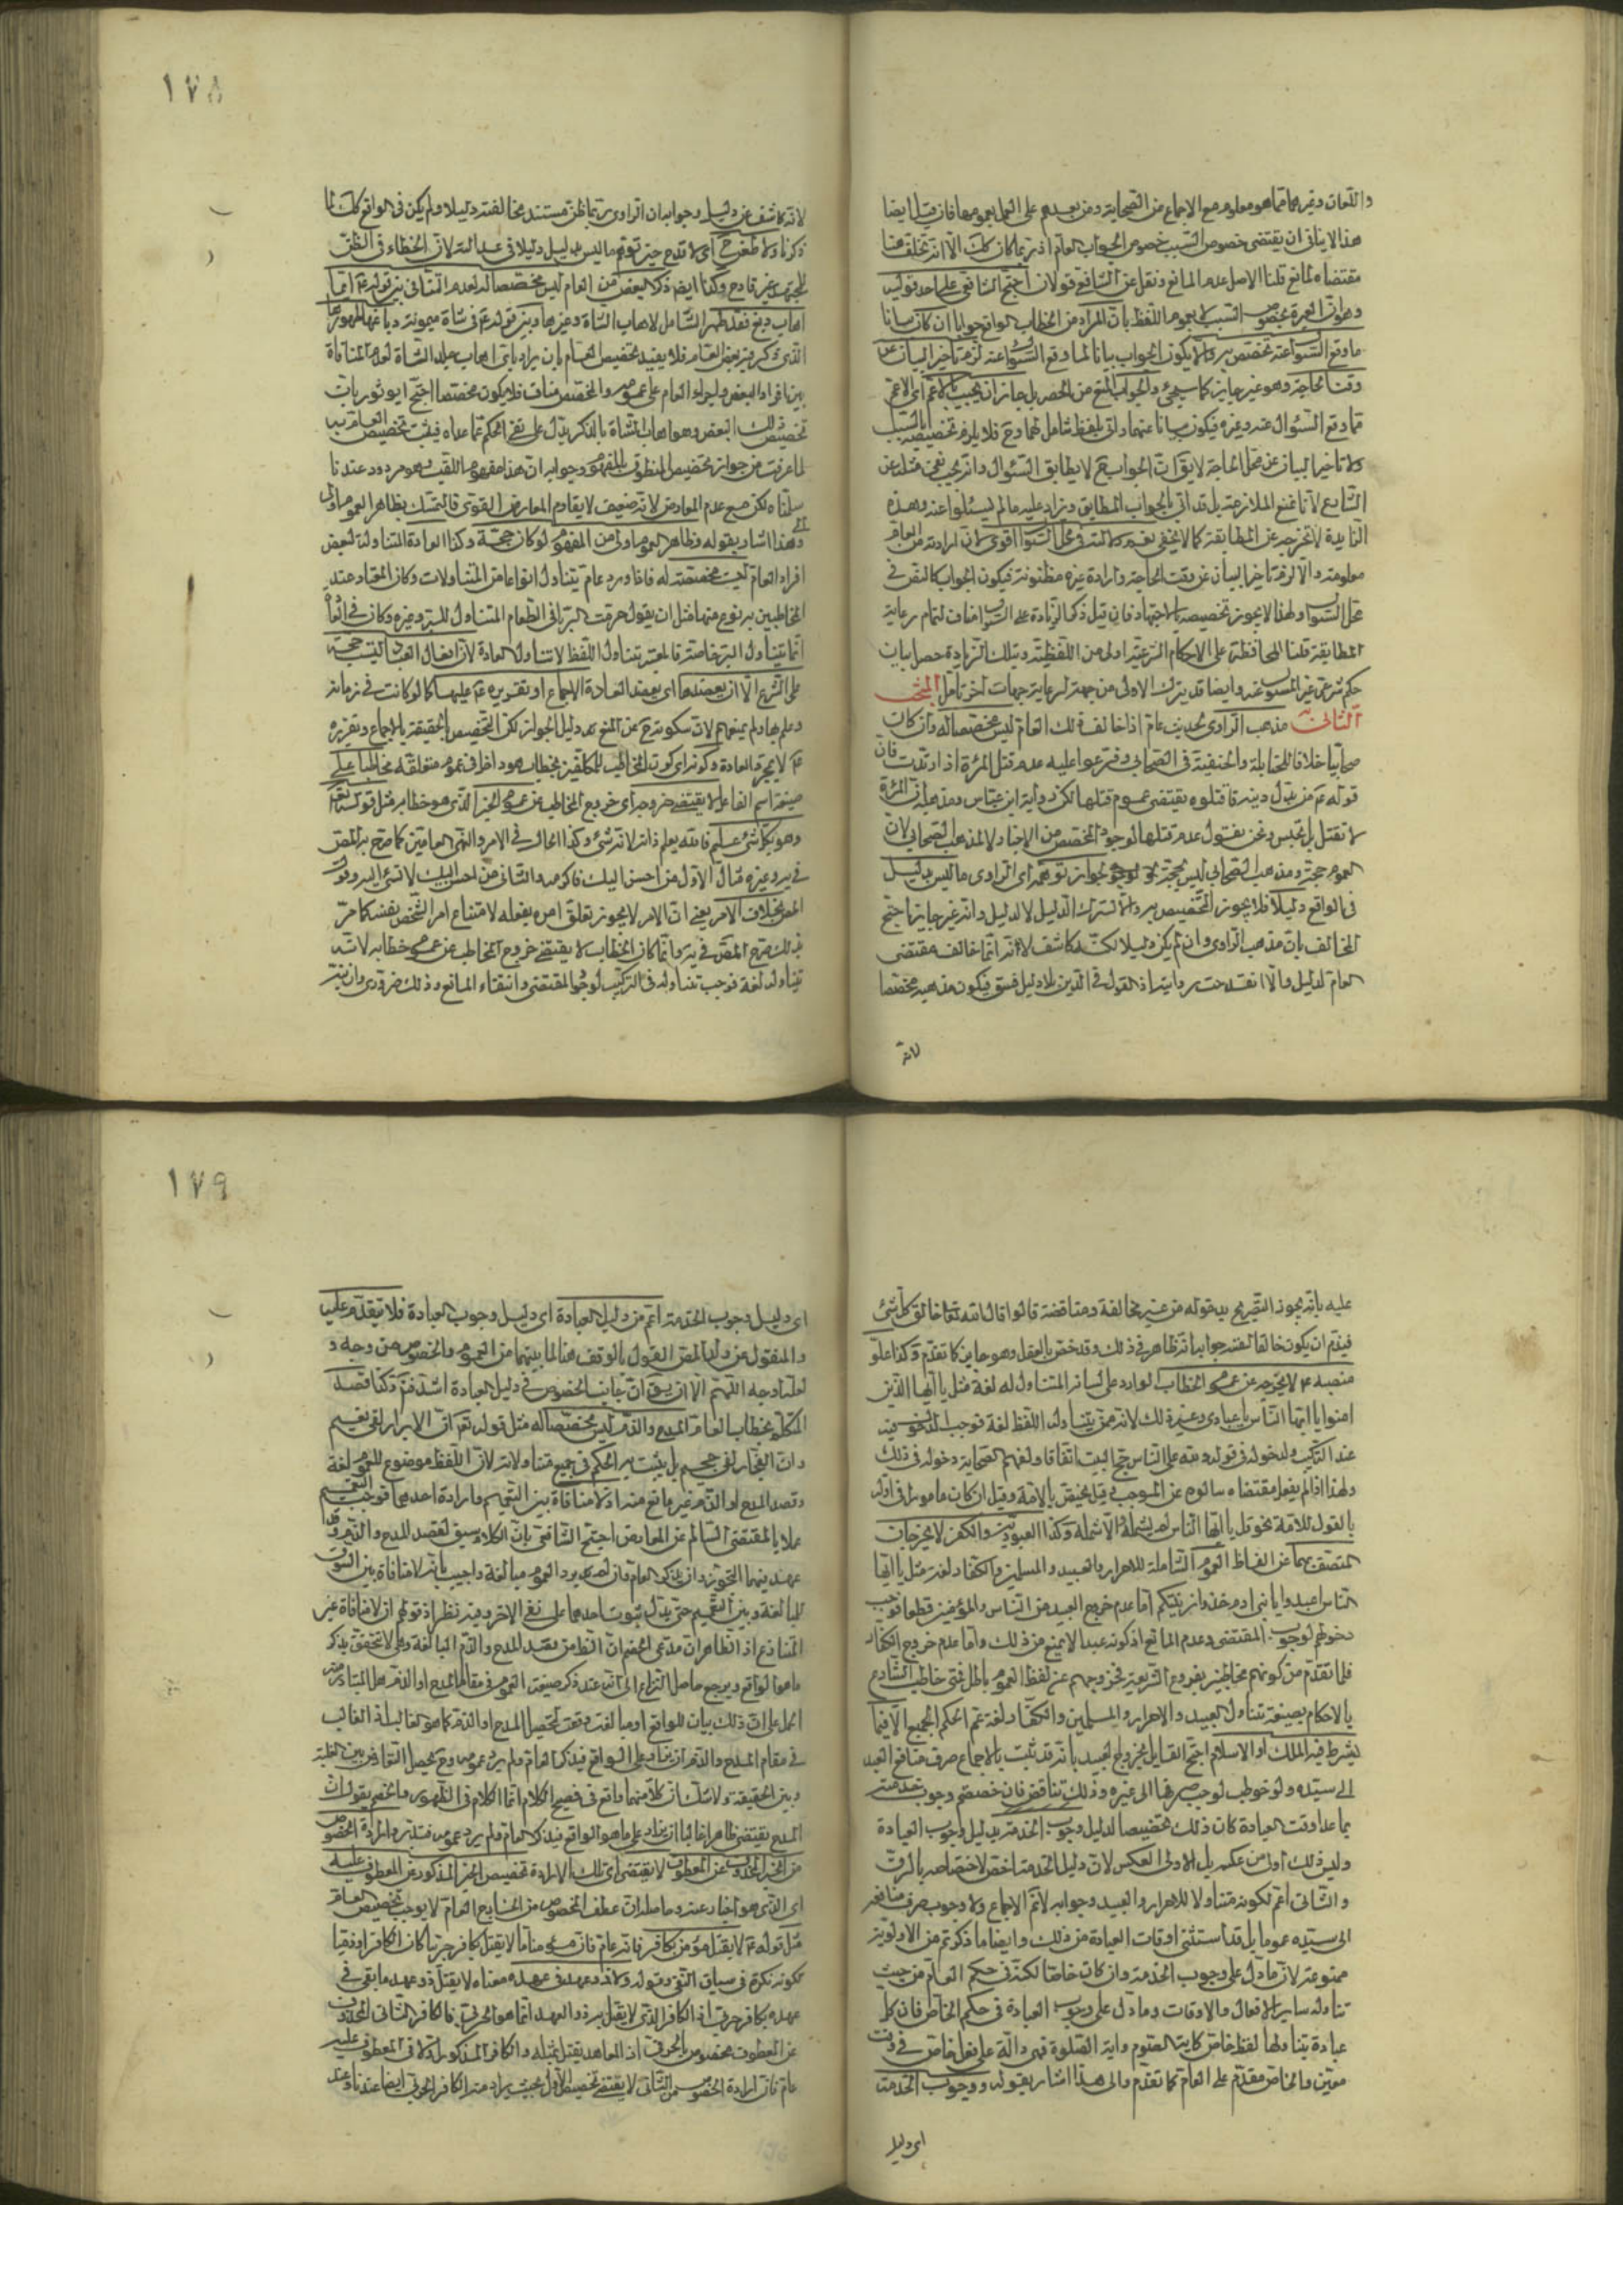 واللعان وغيرها مما هو معلوم مع الاجماع من الصحابة ومن بعدهم على العمل بعمومها فان قيل ايضا
هذا لا ينافى ان يقتضى خصوص السبب خصوص الجواب العام اذ ربما كان كك الا انه تخلف هنا
مقتضاه لمانع قلنا الاصل عدم المانع ونقل عن الشافعى قولان احتج الشافعى على احد قوليه
وهو ان العبرة بخصوص السبب لا بعموم اللفظ بان المراد من الخطاب الواقع جوابا ان كان بيانا
ما وقع السؤال عنه تخصص به والا يكون الجواب بيانا لما وقع السؤال عنه لزم تاخير البيان عن
وقت الحاجة وهو غير جايز كما سيجئ والجواب المنع من الحصر بل جاز ان يجيب بالاعم اى الاعم
مما وقع السؤال عنه وغيره فيكون بيانا عنهما واتى بلفظ شامل لهما وح فلا يلزم تخصيصه بالسبب
ولا تاخير البيان عن محل الحاجة لا يق ان الجواب ح لا يطابق السئوال وانه يجب نفى مثله عن
الشارع لانا نمنع الملازمة بل قد اتى بالجواب المطابق وزاد عليه ما لم يسئلوا عنه وهذه
الزايدة لا تخرجه عن المطابقة كما لا يخفى نعم دلالته فى محل السؤال اقوى لان ارادته من العام
معلومة والا لزم تاخير البيان عن وقت الحاجة وارادة غيره مظنونة فيكون الجواب كالنص فى
محل السؤال ولهذا لا يجوز تخصيصه بالاجتهاد فان قيل ذكر الزيادة على السؤال مناف لتمام رعاية
المطابقة قلنا المحافظة على الاحكام الشرعية اولى من اللفظية وبتلك الزيادة حصل بيان
حكم شرعى غير المسئول عنه وايضا قد يترك الاولى من جهة لرعاية جهات اخر تامل المبحث
الثانى مذهب الراوى لحديث عام اذا خالف ذلك العام ليس مخصصا له وان كان
صحابيا خلافا للحنابلة والحنفية فى الصحابى وفرعوا عليه عدم قتل المرأة اذا ارتدت فان
قوله عم من بدل دينه فاقتلوه يقتضى عموم قتلها لكن رواية ابن عباس ومذهبه ان المرأة
لا تقتل بل تحبس ونحن نقول عدم قتلها لوجود المخصص من الاخبار لا لمذهب الصحابى لان
العموم حجة ومذهب الصحابى ليس بحجة لجواز توهمه اى الراوى ما ليس بدليل
فى الواقع دليلا فلا يجوز التخصيص به والا لترك الدليل لا لدليل وانه غير جايز احتج
المخالف بان مذهب الراوى وان لم يكن دليلا لكنه كاشف لانه انما خالف مقتضى
العام لدليل والا انقدحت روايته اذ القول فى الدين بلا دليل فسق فيكون مذهبه مخصصا
لانه
١٧٨
لانه كاشف عن دليل وجوابه ان الراوى ربما ظن مستند مخالفته دليلا ولم يكن فى الواقع كك لما
ذكرنا ولا طعن ح اى لا قدح حين توهم ما ليس بدليل دليلا فى عدالته لان الخطاء فى الظن
للمجتهد غير قادح وكذا ايضا ذكر البعض من العام ليس مخصصا له لعدم التنافى بين قوله عم ايما
اهاب دبغ فقد طهر الشامل لاهاب الشاة وغيرها وبين قوله عم فى شاة ميمونة دباغها طهورها
الذى ذكر فيه بعض العام فلا يفيد تخصيص العام بان يراد باى اهاب جلد الشاة لعدم المنافاة
بين افراد البعض واجراء العام على عمومه والمخصص مناف فلا يكون مخصصا احتج ابو ثور بان
تخصيص ذلك البعض وهو اهاب الشاة بالذكر يدل على نفى الحكم عما عداه فيثبت تخصيص العام به
لما عرفت من جواز تخصيص المنطوق بالمفهوم وجوابه ان هذا مفهوم اللقب وهو مردود عندنا
سلمناه لكن مع عدم المعارض لانه ضعيف لا يقاوم المعارض القوى فالتمسك بظاهر العموم اولى
والى هذا اشار بقوله وظاهر العموم اولى من المفهوم لو كان حجة وكذا العادة المتناولة لبعض
افراد العام ليست مخصصة له فاذا ورد عام يتناول انواعا من المتناولات وكان المعتاد عند
المخاطبين به نوع منها مثل ان يقول حرمت الربا فى الطعام المتناول للبر وغيره وكان فى العادة
انما يتناول البر خاصة فالمعتبر تناول اللفظ لا تناول العادة لان افعال العباد ليست حجة
على الشرع الا ان يعضدها اى يعضد العادة الاجماع او تقريره عم عليها كما لو كانت فى زمانه
وعلم بها ولم يمنعهم لان سكوته عم عن المنع دليل الجواز لكن التخصيص بالحقيقة بالاجماع وتقريره
عم لا بمجرد العادة وكونه اى كون المخاطب للمكلفين بخطاب هو داخل فى عموم متعلقه مخاطبا على
صيغة اسم الفاعل لا يقتضى خروجه اى خروج المخاطب عن عموم الخبر الذى هو خطابه مثل قوله تعالى
وهو بكل شئ عليم فالله يعلم ذاته لانه شئ وكذا الحال فى الامر والنهى العامين كما صرح به المص
فى يه وغيره مثال الاول من احسن اليك فاكرمه والثانى من احسن اليك لا تسئ اليه وقول
المص بخلاف الامر يعنى ان الامر لا يجوز تعلق امره بفعله لامتناع امر الشخص نفسه كما مر
بذلك صرح المص فى يه وانما كان الخطاب لا يقتضى خروج المخاطب عن عموم خطابه لانه
يتناوله لغة فوجب تناوله فى التركيب لوجود المقتضى وانتفاء المانع وذلك ضرورى وان نبه
عليه بانه يجوز التصريح بدخوله من غير مخالفة ومناقضة قالوا قال الله تعالى خالق كل شئ
فيلزم ان يكون خالقا لنفسه جوابه انه ظاهر فى ذلك وقد خص بالعقل وهو جايز كما تقدم وكذا علو
منصبه عم لا يخرجه عن عموم الخطاب الوارد على لسانه المتناول له لغة مثل يا ايها الذين
امنوا يا ايها الناس يا عبادى وغير ذلك لانه ممن يتناوله اللفظ لغة فوجب الدخول فيه
عند التركيب ولدخوله فى قوله لله على الناس حج البيت اتفاقا ولفهم الصحابة دخوله فى ذلك
ولهذا اذا لم يفعل مقتضاه سالوه عن الموجب وقيل يختص بالامة وقيل ان كان مامورا فى اوله
بالقول للامة نحو قل يا ايها الناس لم يشمله والا شمله وكذا العبودية والكفر لا يخرجان
المتصف بهما عن الفاظ العموم الشاملة للاحرار والعبيد والمسلمين والكفار لغة مثل يا ايها
الناس اعبدوا يا بنى ادم خذوا زينتكم اما عدم خروج العبيد من الناس والمؤمنين قطعا فوجب
دخولهم لوجود المقتضى وعدم المانع اذ كونه عبدا لا يمنع من ذلك واما عدم خروج الكفار
فلما تقدم من كونهم مخاطبين بفروع الشريعة فخروجهم عن لفظ العموم باطل فمتى خاطب الشارع
بالاحكام بصيغة تتناول العبيد والاحرار والمسلمين والكفار لغة عم الحكم الجميع الا فيما
يشترط فيه الملك او الاسلام احتج القايل بخروج العبيد بانه قد ثبت بالاجماع صرف منافع العبد
الى سيده ولو خوطب لوجب صرفها الى غيره وذلك تناقض فان خصصتم وجوب خدمته
بما عدا وقت العبادة كان ذلك تخصيصا لدليل وجوب الخدمة بدليل وجوب العبادة
وليس ذلك اولى من عكسه بل الاولى العكس لان دليل الخدمة اخص لاختصاصه بالرق
والثانى اعم لكونه متناولا للاحرار والعبيد وجوابه لا نم الاجماع ولا وجوب صرف منافعه
الى سيده عموما بل قد استثنى اوقات العبادة من ذلك وايضا ما ذكرتم من الاولوية
ممنوعة لان ما دل على وجوب الخدمة وان كان خاصا لكنه فى حكم العام من حيث
تناوله ساير الافعال والاوقات وما دل على وجوب العبادة فى حكم الخاص فان كل
عبادة يتناولها لفظ خاص كاية الصوم واية الصلوة فهى دالة على فعل خاص فى وقت
معين والخاص مقدم على العام كما تقدم والى هذا اشار بقوله ووجوب الخدمة
اى دليل
١٧٩
اى دليل وجوب الخدمة اعم من دليل العبادة اى دليل وجوب العبادة فلا يتقدم عليه
والمنقول عن ولد المص القول بالوقف هنا لما بينهما من العموم والخصوص من وجه و
لعلنا وجه اللهم الا ان يق ان جانب الخصوص فى دليل العبادة اشد فت وكذا قصد
المتكلم بخطاب العام المدح والذم ليس مخصصا له مثل قوله تع ان الابرار لفى نعيم
وان الفجار لفى جحيم بل يثبت به الحكم فى جميع متناولاته لان اللفظ موضوع للعموم لغة
وقصد المدح او الذم غير مانع منه اذ لا منافاة بين التعميم وارادة احدهما فوجب التعميم
عملا بالمقتضى السالم عن المعارض احتج الشافعى بان الكلام سيق لقصد المدح والذم وقد
عهد فيهما التجوز وان يذكر العام وان لم يرد العموم مبالغة واجيب بانه لا منافاة بين السوق
للمبالغة وبين التعميم حتى يدل ثبوت احدهما على نفى الاخر وفيه نظر اذ قولكم ان لا منافاة غير
المتنازع اذ الظاهر ان مدعى الخصم ان الظ من قصد المدح والذم المبالغة وهى لا تتحقق بذكر
ما هو الواقع ويرجع حاصل النزاع الى انه عند ذكر صيغة العموم فى مقام المدح او الذم هل المتبادر منه
الحمل على ان ذلك بيان للواقع او مبالغة وقعت لتحصيل المدح او الذم كما هو الغالب اذ الغالب
فى مقام المدح والذم ان يزاد على الواقع فيذكر العام ولم يرد عمومه وح يحصل التعارض بين الغلبة
وبين الحقيقة ولا شك ان كلا منهما واقع فى فصيح الكلام انما الكلام فى الظهور والخصم يقول ان
المدح يقتضى ظاهرا غالبا ان يزاد على ما هو الواقع فيذكر العام ولم يرد عمومه فتدبر وارادة الخصوص
من الخبر المحذوف عن المعطوف لا يقتضى اى تلك الارادة تخصيص الخبر المذكور عن المعطوف عليه
اى الذى هو اخبار عنه وحاصله ان عطف الخصوص من الخارج العام لا يوجب تخصيص العام
مثل قوله عم لا يقتل مؤمن بكافر فانه عام فان معناه لا يقتل بكافر حربيا كان الكافر او ذميا
لكونه نكرة فى سياق النفى وقوله ولا ذو عهد فى عهده معناه لا يقتل ذو عهد ما بقى فى
عهده بكافر حربى اذ الكافر الذى لا يقتل به ذو العهد انما هو الحربى فالكافر الثانى المحذوف
عن المعطوف مخصوص بالحربى اذ المعاهد يقتل بمثله والكافر المذكور اولا فى المعطوف عليه
عام فان ارادة الخصوص من الثانى لا يقتضى تخصيص الاول بحيث يراد منه الكافر الحربى ايضا عندنا وعند